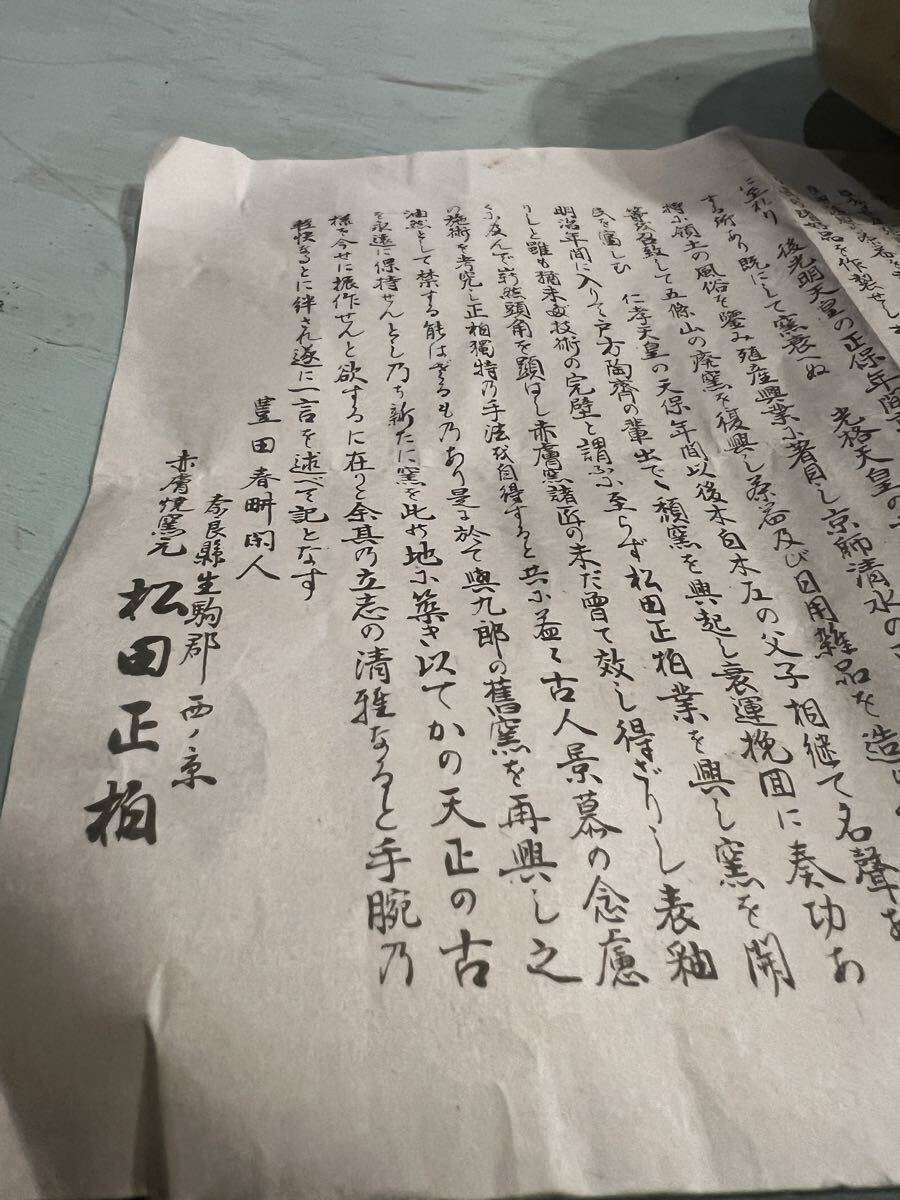 品を作製せし
後光明天皇の正保年間
に至れり 後光明天皇の正保年間
する所あり既にして窯衰へぬ 光格天皇の
将に領土の風俗を鑒み殖産興業に著目し京師清水の
等を召致して五條山の廃窯を復興し茶器及び日用雑品を造
民を富しむ 仁孝天皇の天保年間以後木白木左の父子相継て名聲あ
明治年間に入りて戸方陶斉の輩出で頽窯を興起し衰運挽回に奏功あ
りしと雖も猶未だ技術の完璧と謂ふに至らず松田正柏業を興し窯を開
くに及んで嶄然頭角を顕はし赤膚窯諸匠の未だ曽て效し得ざりし表釉
の施術を考究し正柏獨特乃手法を自得すると共に益々古人景慕の念慮
油然として禁する能はざるもの乃あり是に於て與九郎の舊窯を再興し之
を永遠に保持せんとし乃ち新たに窯を此の地に築き以てかの天正の古
様を今せに振作せんと欲するに在りと余其乃立志の清雅なると手腕乃
軽快なるとに絆され遂に一言を述べて記となす
豊田春畊閑人
奈良縣生駒郡西ノ京
赤膚焼窯元 松田正柏